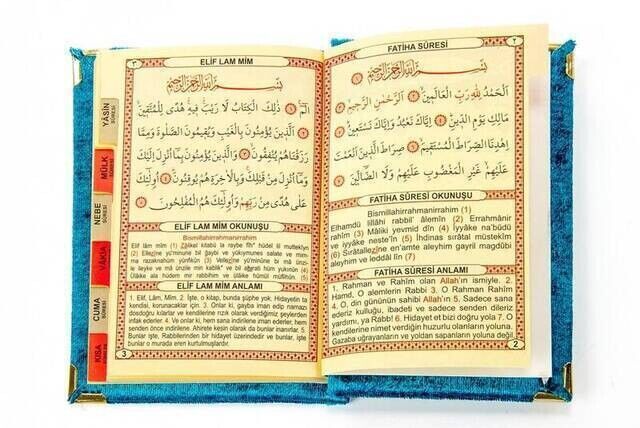 FATİHA SÛRESİ ٢
بِسْمِ اللهِ الرَّحْمٰنِ الرَّحِيمِ ﴿١﴾
اَلْحَمْدُ لِلّٰهِ رَبِّ الْعَالَمِينَ ﴿٢﴾ اَلرَّحْمٰنِ الرَّحِيمِ ﴿٣﴾
مَالِكِ يَوْمِ الدِّينِ ﴿٤﴾ اِيَّاكَ نَعْبُدُ وَاِيَّاكَ نَسْتَعِينُ ﴿٥﴾
اِهْدِنَا الصِّرَاطَ الْمُسْتَقِيمَ ﴿٦﴾ صِرَاطَ الَّذِينَ اَنْعَمْتَ
عَلَيْهِمْ غَيْرِ الْمَغْضُوبِ عَلَيْهِمْ وَلَا الضَّالِّينَ ﴿٧﴾
FATİHA SÛRESİ OKUNUŞU
Bismillahirrahmanirrahim (1)
Elhamdü lillâhi rabbil' âlemîn (2) Errahmânir
rahîm (3) Mâliki yevmid dîn (4) Iyyâke na'büdü
ve iyyâke neste'în (5) İhdinas sırâtal müstekîm
(6) Sırâtallezîne en'amte aleyhim gayril magdûbi
aleyhim ve leddâl lîn (7)
FATİHA SÛRESİ ANLAMI
1. Rahmân ve Rahîm olan Allah'ın ismiyle. 2.
Hamd, O alemlerin Rabbi 3. O Rahman Rahîm
4. O, din gününün sahibi Allah'ın 5. Sadece sana
ederiz kulluğu, ibadeti ve sadece senden dileriz
yardımı, ya Rabb! 6. Hidayet et bizi doğru yola 7. O
kendilerine nimet verdiğin huzurlu olanların yoluna.
Gazaba uğrayanların ve yoldan sapanların yoluna değil.
2
٣ ELİF LAM MİM
بِسْمِ اللهِ الرَّحْمٰنِ الرَّحِيمِ
الٓمٓ ﴿١﴾ ذٰلِكَ الْكِتَابُ لَا رَيْبَ فِيهِ هُدًى لِلْمُتَّقِينَ ﴿٢﴾
اَلَّذِينَ يُؤْمِنُونَ بِالْغَيْبِ وَيُقِيمُونَ الصَّلٰوةَ وَمِمَّا
رَزَقْنَاهُمْ يُنْفِقُونَ ﴿٣﴾ وَالَّذِينَ يُؤْمِنُونَ بِمَا اُنْزِلَ اِلَيْكَ
وَمَا اُنْزِلَ مِنْ قَبْلِكَ وَبِالْاٰخِرَةِ هُمْ يُوقِنُونَ ﴿٤﴾ اُولٰئِكَ
عَلٰى هُدًى مِنْ رَبِّهِمْ وَاُولٰئِكَ هُمُ الْمُفْلِحُونَ ﴿٥﴾
ELİF LAM MİM OKUNUŞU
Bismillahirrahmanirrahim
Elif lâm mîm (1) Zâlikel kitâbü la raybe fîh' hüdel lil müttekîyn
(2) Ellezîne yü'minune bil ğaybi ve yükıymunes salate ve mim-
ma razaknahüm yünfikûn' (3) Vellezîne yü'minune bi mâ ünzi-
le ileyke ve mâ ünzile min kablik' ve bil ahırati hüm yûkınûn (4)
Ülâike ala hüdem mir rabbihim ve ülâike hümül müflihûn (5)
ELİF LAM MİM ANLAMI
1. Elif, Lâm, Mîm. 2. İşte, o kitap, bunda şüphe yok. Hidayetin ta
kendisi, korunacaklar için. 3. Onlar ki, gayba iman edip namazı
dosdoğru kılarlar ve kendilerine rızık olarak verdiğimiz şeylerden
infak ederler. 4. Ve onlar ki, hem sana indirilene iman ederler, hem
senden önce indirilene. Ahirete kesin olarak da bunlar inanırlar. 5.
Bunlar işte, Rabbilerinden bir hidayet üzerindedir ve bunlar, işte
bunlar o murada eren kurtulmuşlardır.
3
YÂSİN
SÛRESİ
MÜLK
SÛRESİ
NEBE
SÛRESİ
VAKIA
CUMA
SÛRESİ
KISA